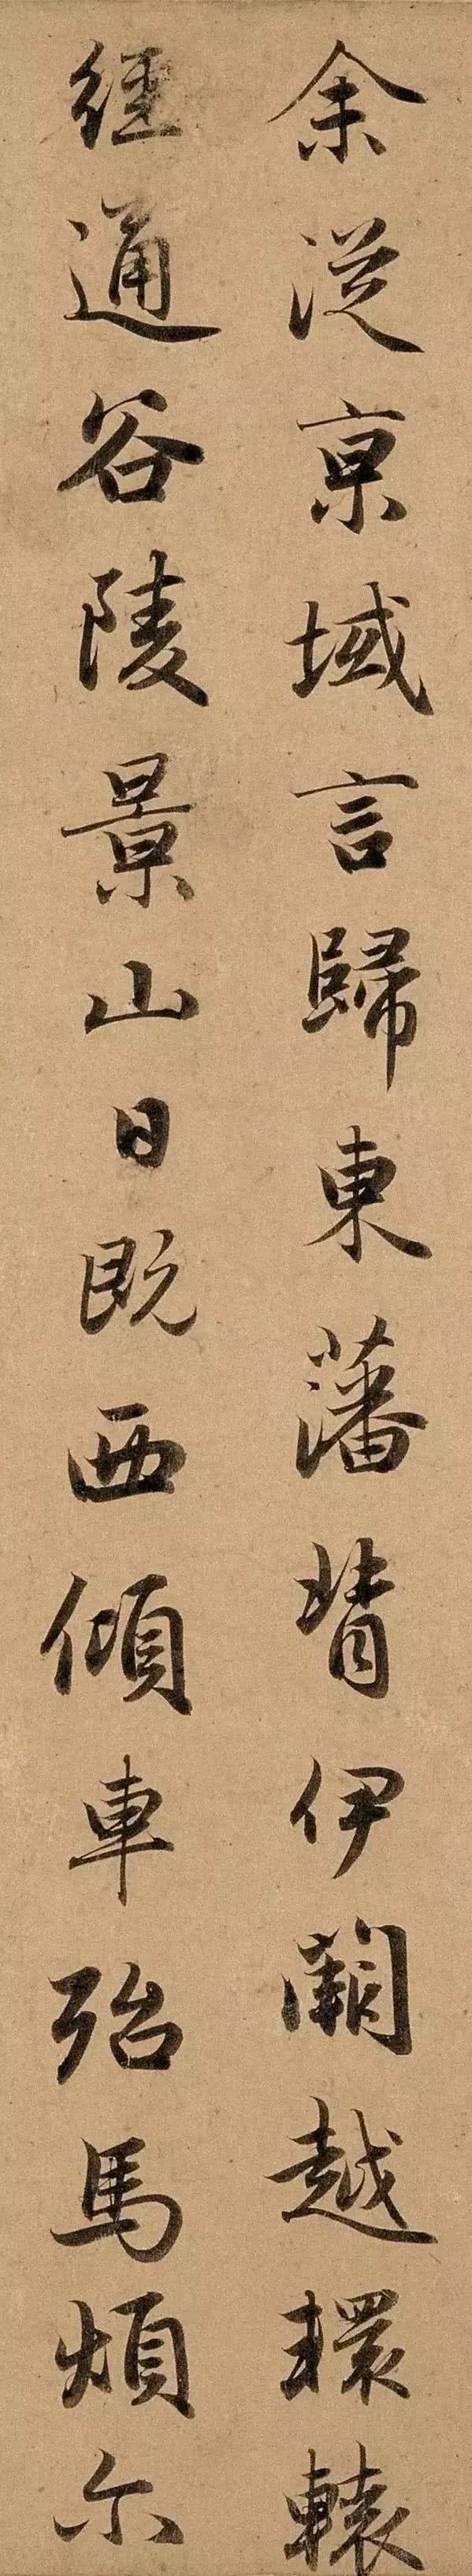 余從京域言歸東藩背伊闕越轘轅
經通谷陵景山日既西傾車殆馬煩尔